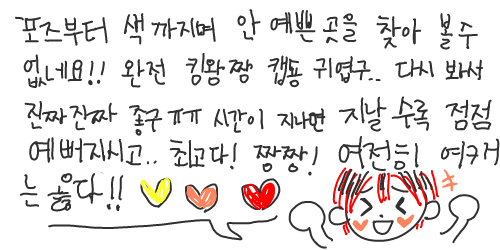 포즈부터 색까지며 안 예쁜 곳을 찾아 볼수
없네요!! 완전 킹왕짱 캡숑 귀엽구.. 다시 봐서
진짜진짜 좋구ㅠㅠ 시간이 지나면 지날수록 점점
예뻐지시고.. 최고다! 짱짱! 여전히 여커
는 옳다!!